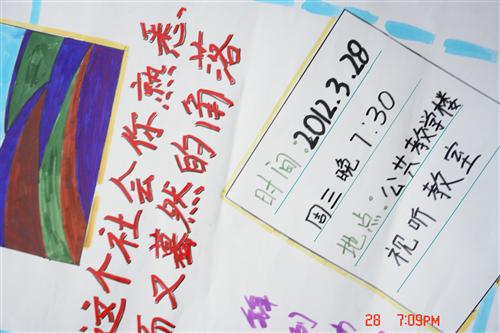 这个社会你熟悉
而又蓦然的角落
时间：2012.3.28
周三晚 7:30
地点：公共教学楼
视听教室
28 7:09PM